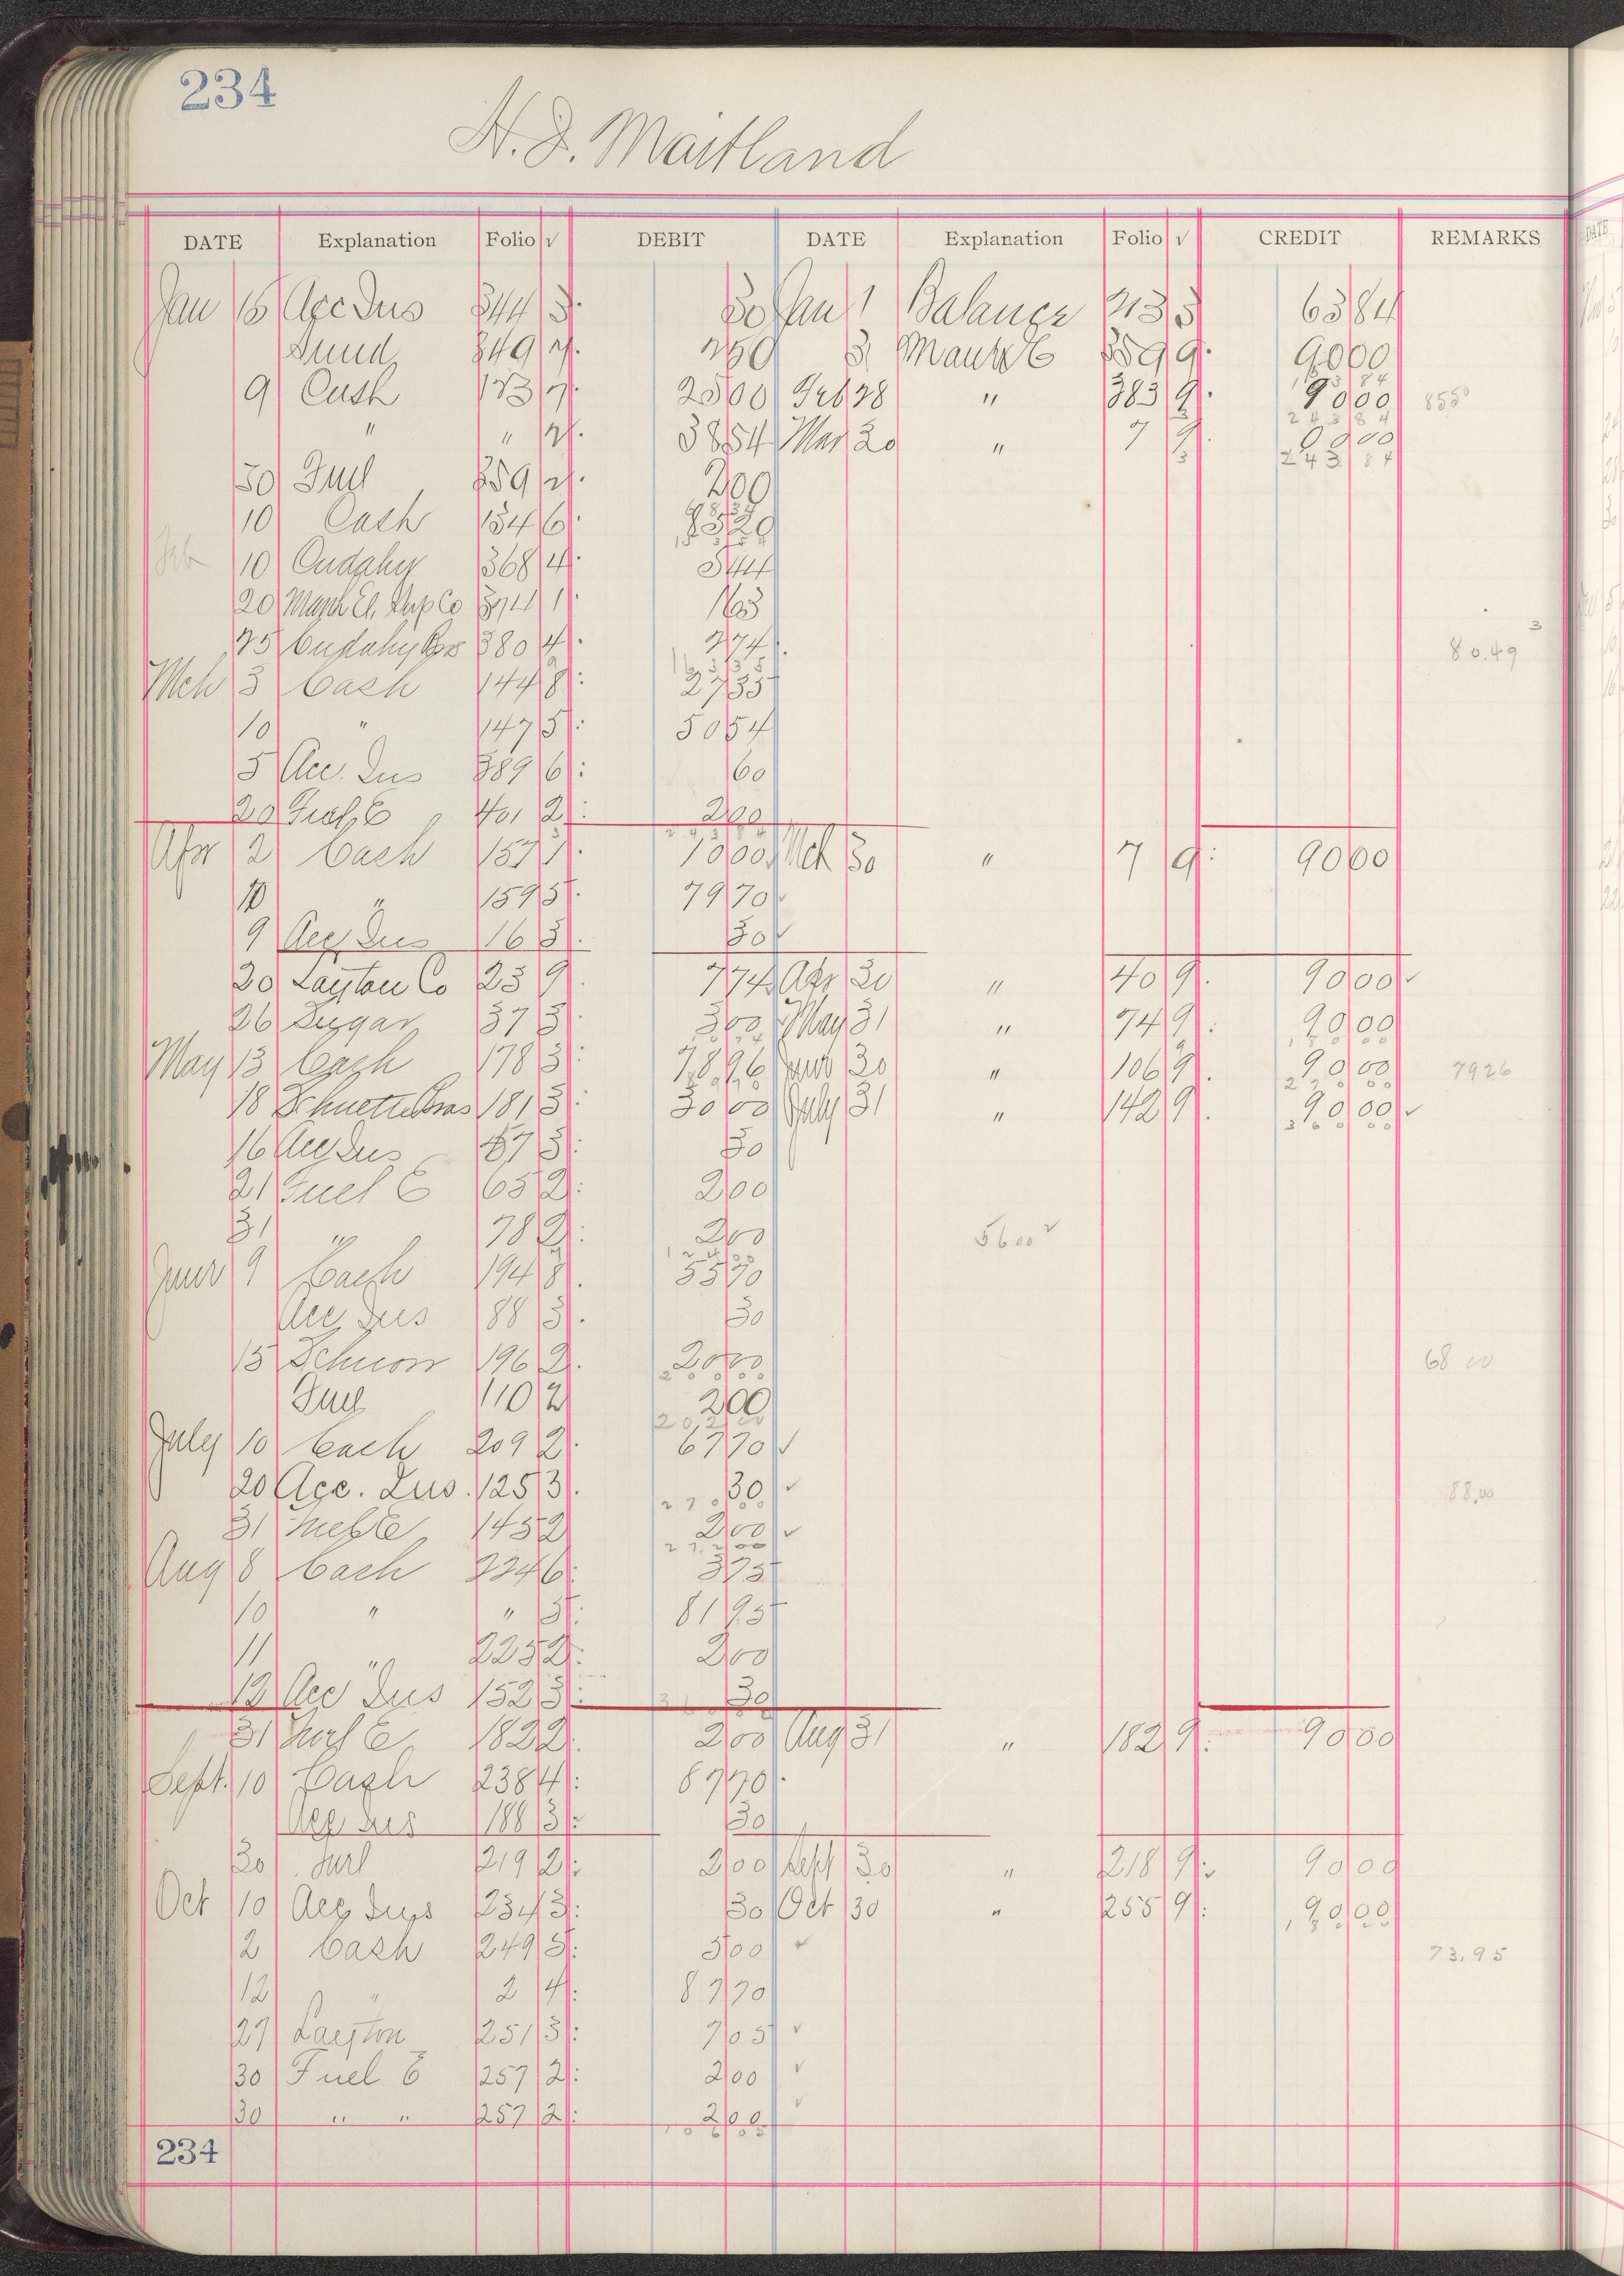 234
H. D. Maitland
DATE Explanation Folio √ DEBIT DATE Explanation Folio √ CREDIT REMARKS
Jan 15 Acc Ins 344 3 30 Jan 1 Balance 213 3 63 84
349 2 2 50 31 599 9 90 00
9 Cash 173 7 25 00 Feb 28 " 383 9 90 00 8550
" " 2 38 54 Mar 30 " 7 9 90 00
243 84
30 Fuel 359 2 2 00
10 Cash 134 6 83 20
Feb 10 Cudahy 368 4 5 44
20 Co 374 1 1 63
25 Cudahy Bros 380 4 2 74 80.49
Mch 3 Cash 144 8 27 35
10 " 147 5 50 54
5 Acc. Ins 389 6 60
20 Fuel E 401 2 2 00
243 84
Apr 2 Cash 157 1 10 00 Mch 30 " 7 9 90 00
10 " 159 5 79 70
9 Acc Ins 16 3 30
20 Layton Co 23 9 7 74 Apr 30 " 40 9 90 00
26 Sugar 37 3 3 00 May 31 " 74 9 90 00
May 13 Cash 178 3 78 96 June 30 " 106 9 90 00 7926
18 Schuette Bros 181 3 30 00 July 31 " 142 9 90 00
360 00
16 Acc Ins 57 3 30
21 Fuel E 65 2 2 00
31 " 78 2 2 00 5600
June 9 Cash 194 8 55 70
Acc Ins 88 3 30
15 196 2 20 00 68 00
Fuel 110 2 2 00
202 00
July 10 Cash 209 2 67 70
20 Acc. Ins. 125 3 30 88.00
270 00
31 Fuel E 145 2 2 00
272 00
Aug 8 Cash 224 6 3 75
10 " " 5 81 95
11 " 225 2 2 00
12 Acc Ins 152 3 30
31 Fuel E 182 2 2 00 Aug 31 " 182 9 90 00
Sept. 10 Cash 238 4 87 70
Acc Ins 188 3 30
30 Fuel 219 2 2 00 Sept 30 " 218 9 90 00
Oct 10 Acc Ins 234 3 30 Oct 30 " 255 9 90 00
180 00
2 Cash 249 5 5 00 73.95
12 " 2 4 87 70
27 Layton 251 3 7 05
30 Fuel E 257 2 2 00
30 " " 257 2 2 00
106 05
234